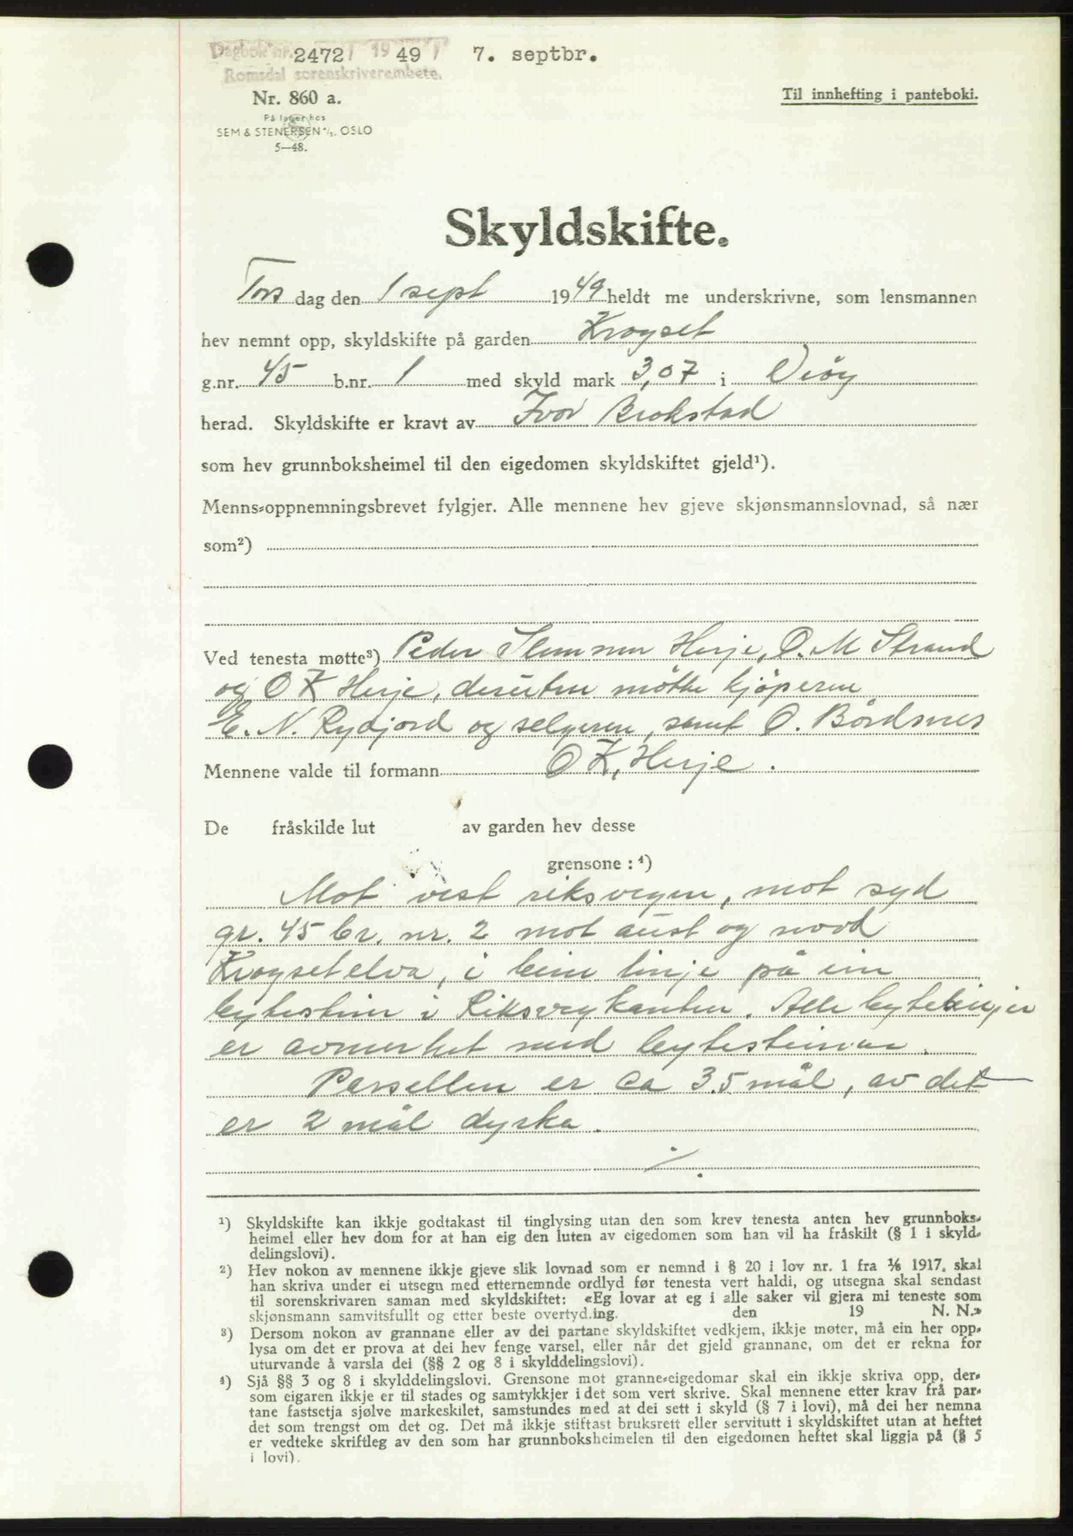 Dagbok nr. 2472 / 19 49 / 7. septbr.
Romsdal sorenskriverembete.
Nr. 860 a.
Til innhefting i panteboki.
På lager hos
SEM & STENERSEN A/S, OSLO
5—48.
Skyldskifte.
Tors dag den 1 sept 1949 heldt me underskrivne, som lensmannen
hev nemnt opp, skyldskifte på garden Krogset
g.nr. 45 b.nr. 1 med skyld mark 3,07 i Veøy
herad. Skyldskifte er kravt av Ivar Brokstad
som hev grunnboksheimel til den eigedomen skyldskiftet gjeld¹).
Menns-oppnemningsbrevet fylgjer. Alle mennene hev gjeve skjønsmannslovnad, så nær
som²)
Ved tenesta møtte³) Peder Herje, O. M Strand
og O K Herje, desuten møtte kjøperen
E. N. Rydjord og selgeren, samt O. Bårdsnes
Mennene valde til formann O K, Herje.
De fråskilde lut av garden hev desse
grensone : ⁴)
Mot vest riksvegen, mot syd
gr. 45 br. nr. 2 mot aust og nord
Krogsetelva, i bein linje på ein
bytestein i Riksvegkanten. Alle bytelinjer
er avmerket med bytesteinar.
Parsellen er ca 3.5 mål, av det
er 2 mål dyrka.
¹) Skyldskifte kan ikkje godtakast til tinglysing utan den som krev tenesta anten hev grunnboks-
heimel eller hev dom for at han eig den luten av eigedomen som han vil ha fråskilt (§ 1 i skyld-
delingslovi).
²) Hev nokon av mennene ikkje gjeve slik lovnad som er nemnd i § 20 i lov nr. 1 fra 1/6 1917, skal
han skriva under ei utsegn med etternemnde ordlyd før tenesta vert haldi, og utsegna skal sendast
til sorenskrivaren saman med skyldskiftet: «Eg lovar at eg i alle saker vil gjera mi teneste som
skjønsmann samvitsfullt og etter beste overtyding. den 19 N. N.»
³) Dersom nokon av grannane eller av dei partane skyldskiftet vedkjem, ikkje møter, må ein her opp-
lysa om det er prova at dei hev fenge varsel, eller når det gjeld grannane, om det er rekna for
uturvande å varsla dei (§§ 2 og 8 i skylddelingslovi).
⁴) Sjå §§ 3 og 8 i skylddelingslovi. Grensone mot granne-eigedomar skal ein ikkje skriva opp, der-
som eigaren ikkje er til stades og samtykkjer i det som vert skrive. Skal mennene etter krav frå par-
tane fastsetja sjølve markeskilet, samstundes med at dei sett i skyld (§ 7 i lovi), må dei her nemna
det som trengst om det og. Det må ikkje stiftast bruksrett eller servitutt i skyldskiftet utan at heftet
er vedteke skriftleg av den som har grunnboksheimelen til den eigedomen heftet skal liggja på (§ 5
i lovi).